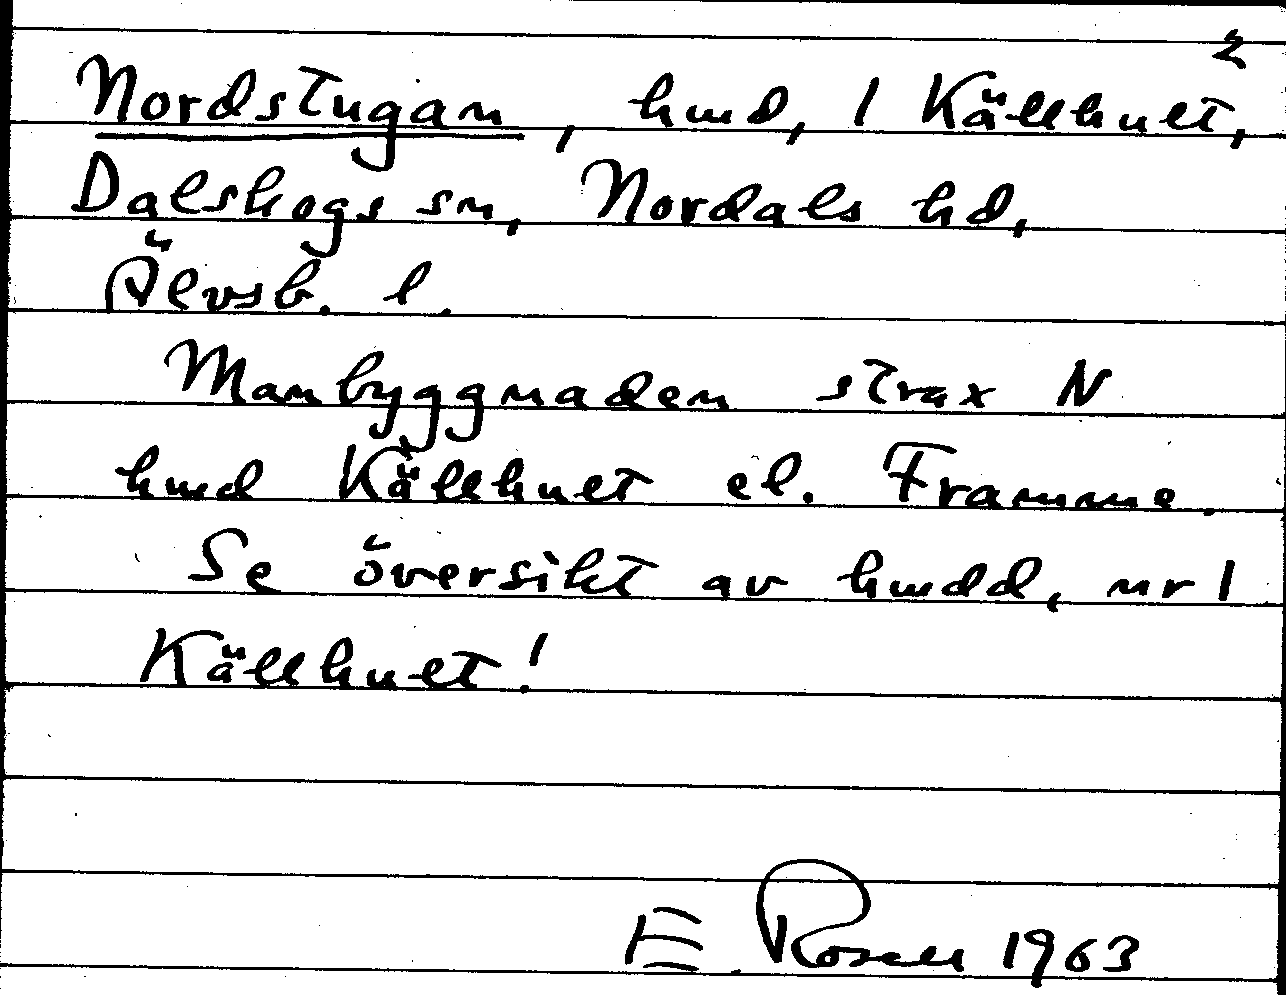 2
Nordstugan, hmd, 1 Källhult,
Dalskogs sn, Nordals hd,
Älvsb. l.
Manbyggnaden strax N
hmd Källhult el. Framme.
Se översikt av hmdd, nr 1
Källhult!
E. Rosell 1963